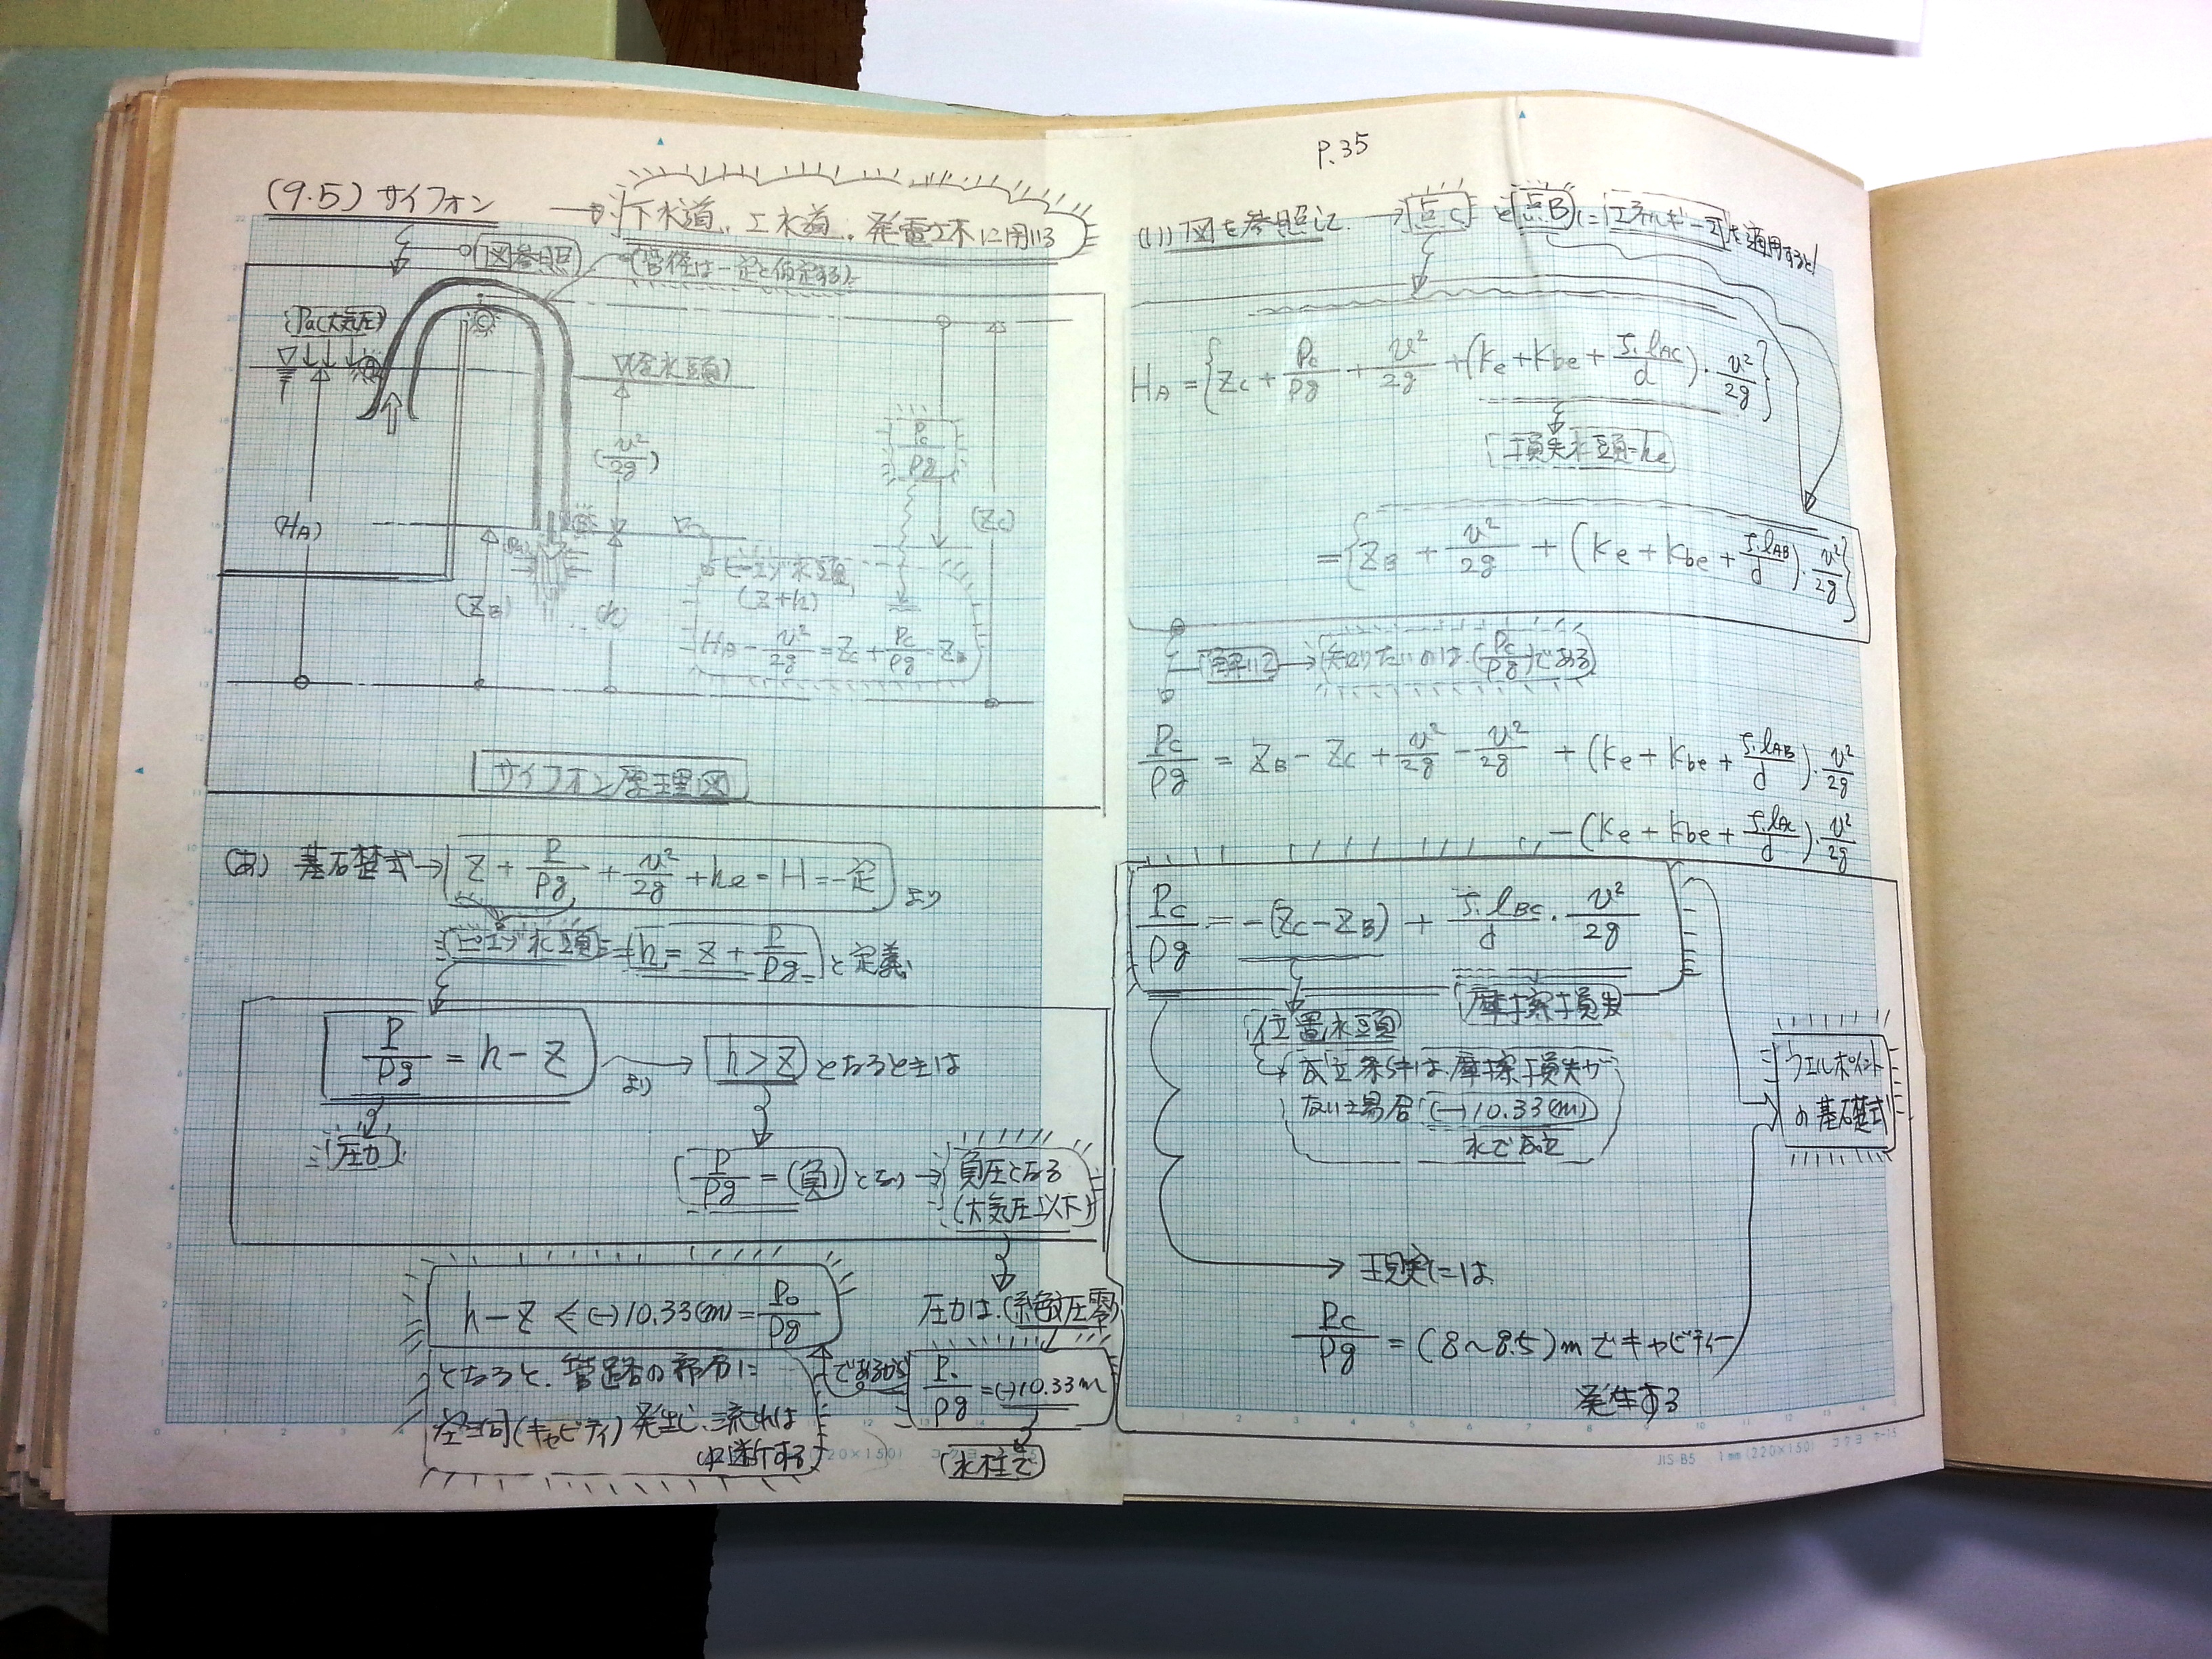 P.35
(9.5) サイフォン
下水道、工水道、発電土木に用いる
図参照
(管径は一定と仮定する)
Pa(大気圧)
C
(全水頭)
(v²/2g)
Pc/ρg
(HA)
(Zc)
(ZB)
(h)
ピエゾ水頭
(Z+h)
HA - v²/2g = Zc + Pc/ρg - ZB
サイフォン原理図
(あ) 基礎式→ Z + P/ρg + v²/2g + he = H = 一定 より
ピエゾ水頭 = h = Z + P/ρg と定義
P/ρg = h - Z より → h > Z となるときは
圧力
P/ρg = (負) となり → 負圧となる
(大気圧以下)
圧力は、(絶対圧零)
であるから P₀/ρg = (-)10.33m
(水柱で)
h - Z ≦ (-)10.33(m) = P₀/ρg
となると、管路の部分に
空洞(キャビティ)発生し、流れは
中断する
(い) 図を参照して → 点C と 点B に エネルギー式 を適用すると
HA = {Zc + Pc/ρg + v²/2g + (Ke + Kbe + ζ·lAC/d)·v²/2g}
損失水頭=he
= {ZB + v²/2g + (Ke + Kbe + ζ·lAB/d)·v²/2g}
解いて → 知りたいのは、(Pc/ρg)である
Pc/ρg = ZB - Zc + v²/2g - v²/2g + (Ke + Kbe + ζ·lAB/d)·v²/2g
- (Ke + Kbe + ζ·lAC/d)·v²/2g
Pc/ρg = -(Zc - ZB) + ζ·lBC/d · v²/2g
位置水頭
摩擦損失
成立条件は、摩擦損失が
ない場合 (-)10.33(m)
水で成立
ウエルポイント
の基礎式
現実には
Pc/ρg = (8〜8.5)m でキャビティー
発生する
JIS B5 1mm(220×150) コクヨ ホ-15